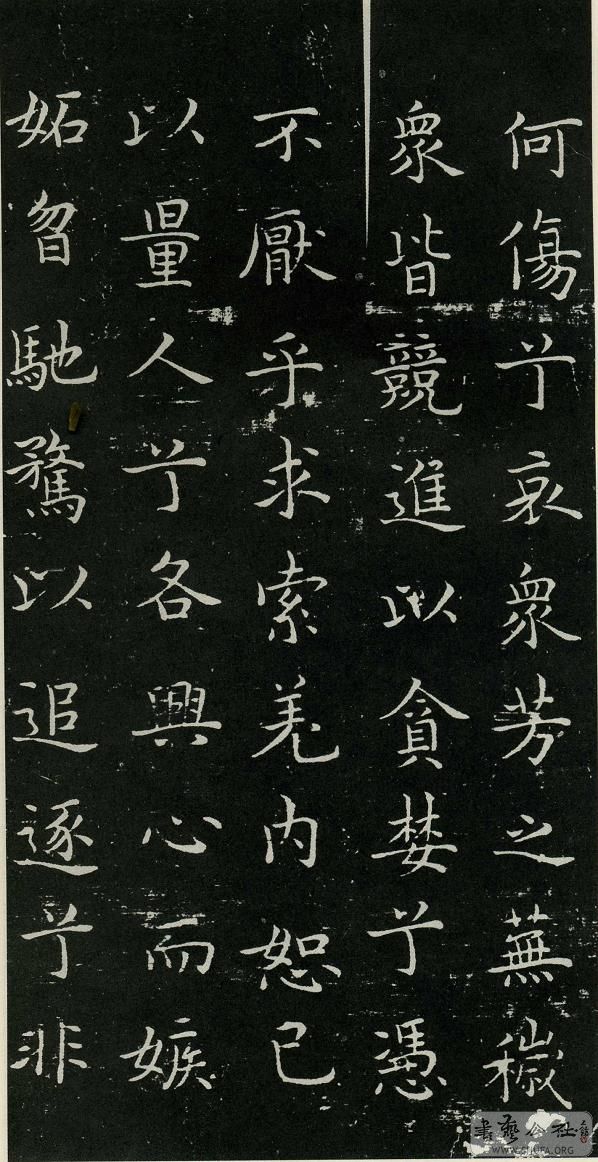 何傷兮哀衆芳之蕪穢
衆皆競進以貪婪兮憑
不厭乎求索羌内恕己
以量人兮各興心而嫉
妬曶馳騖以追逐兮非
書藝公社
WWW.SHUFA.ORG